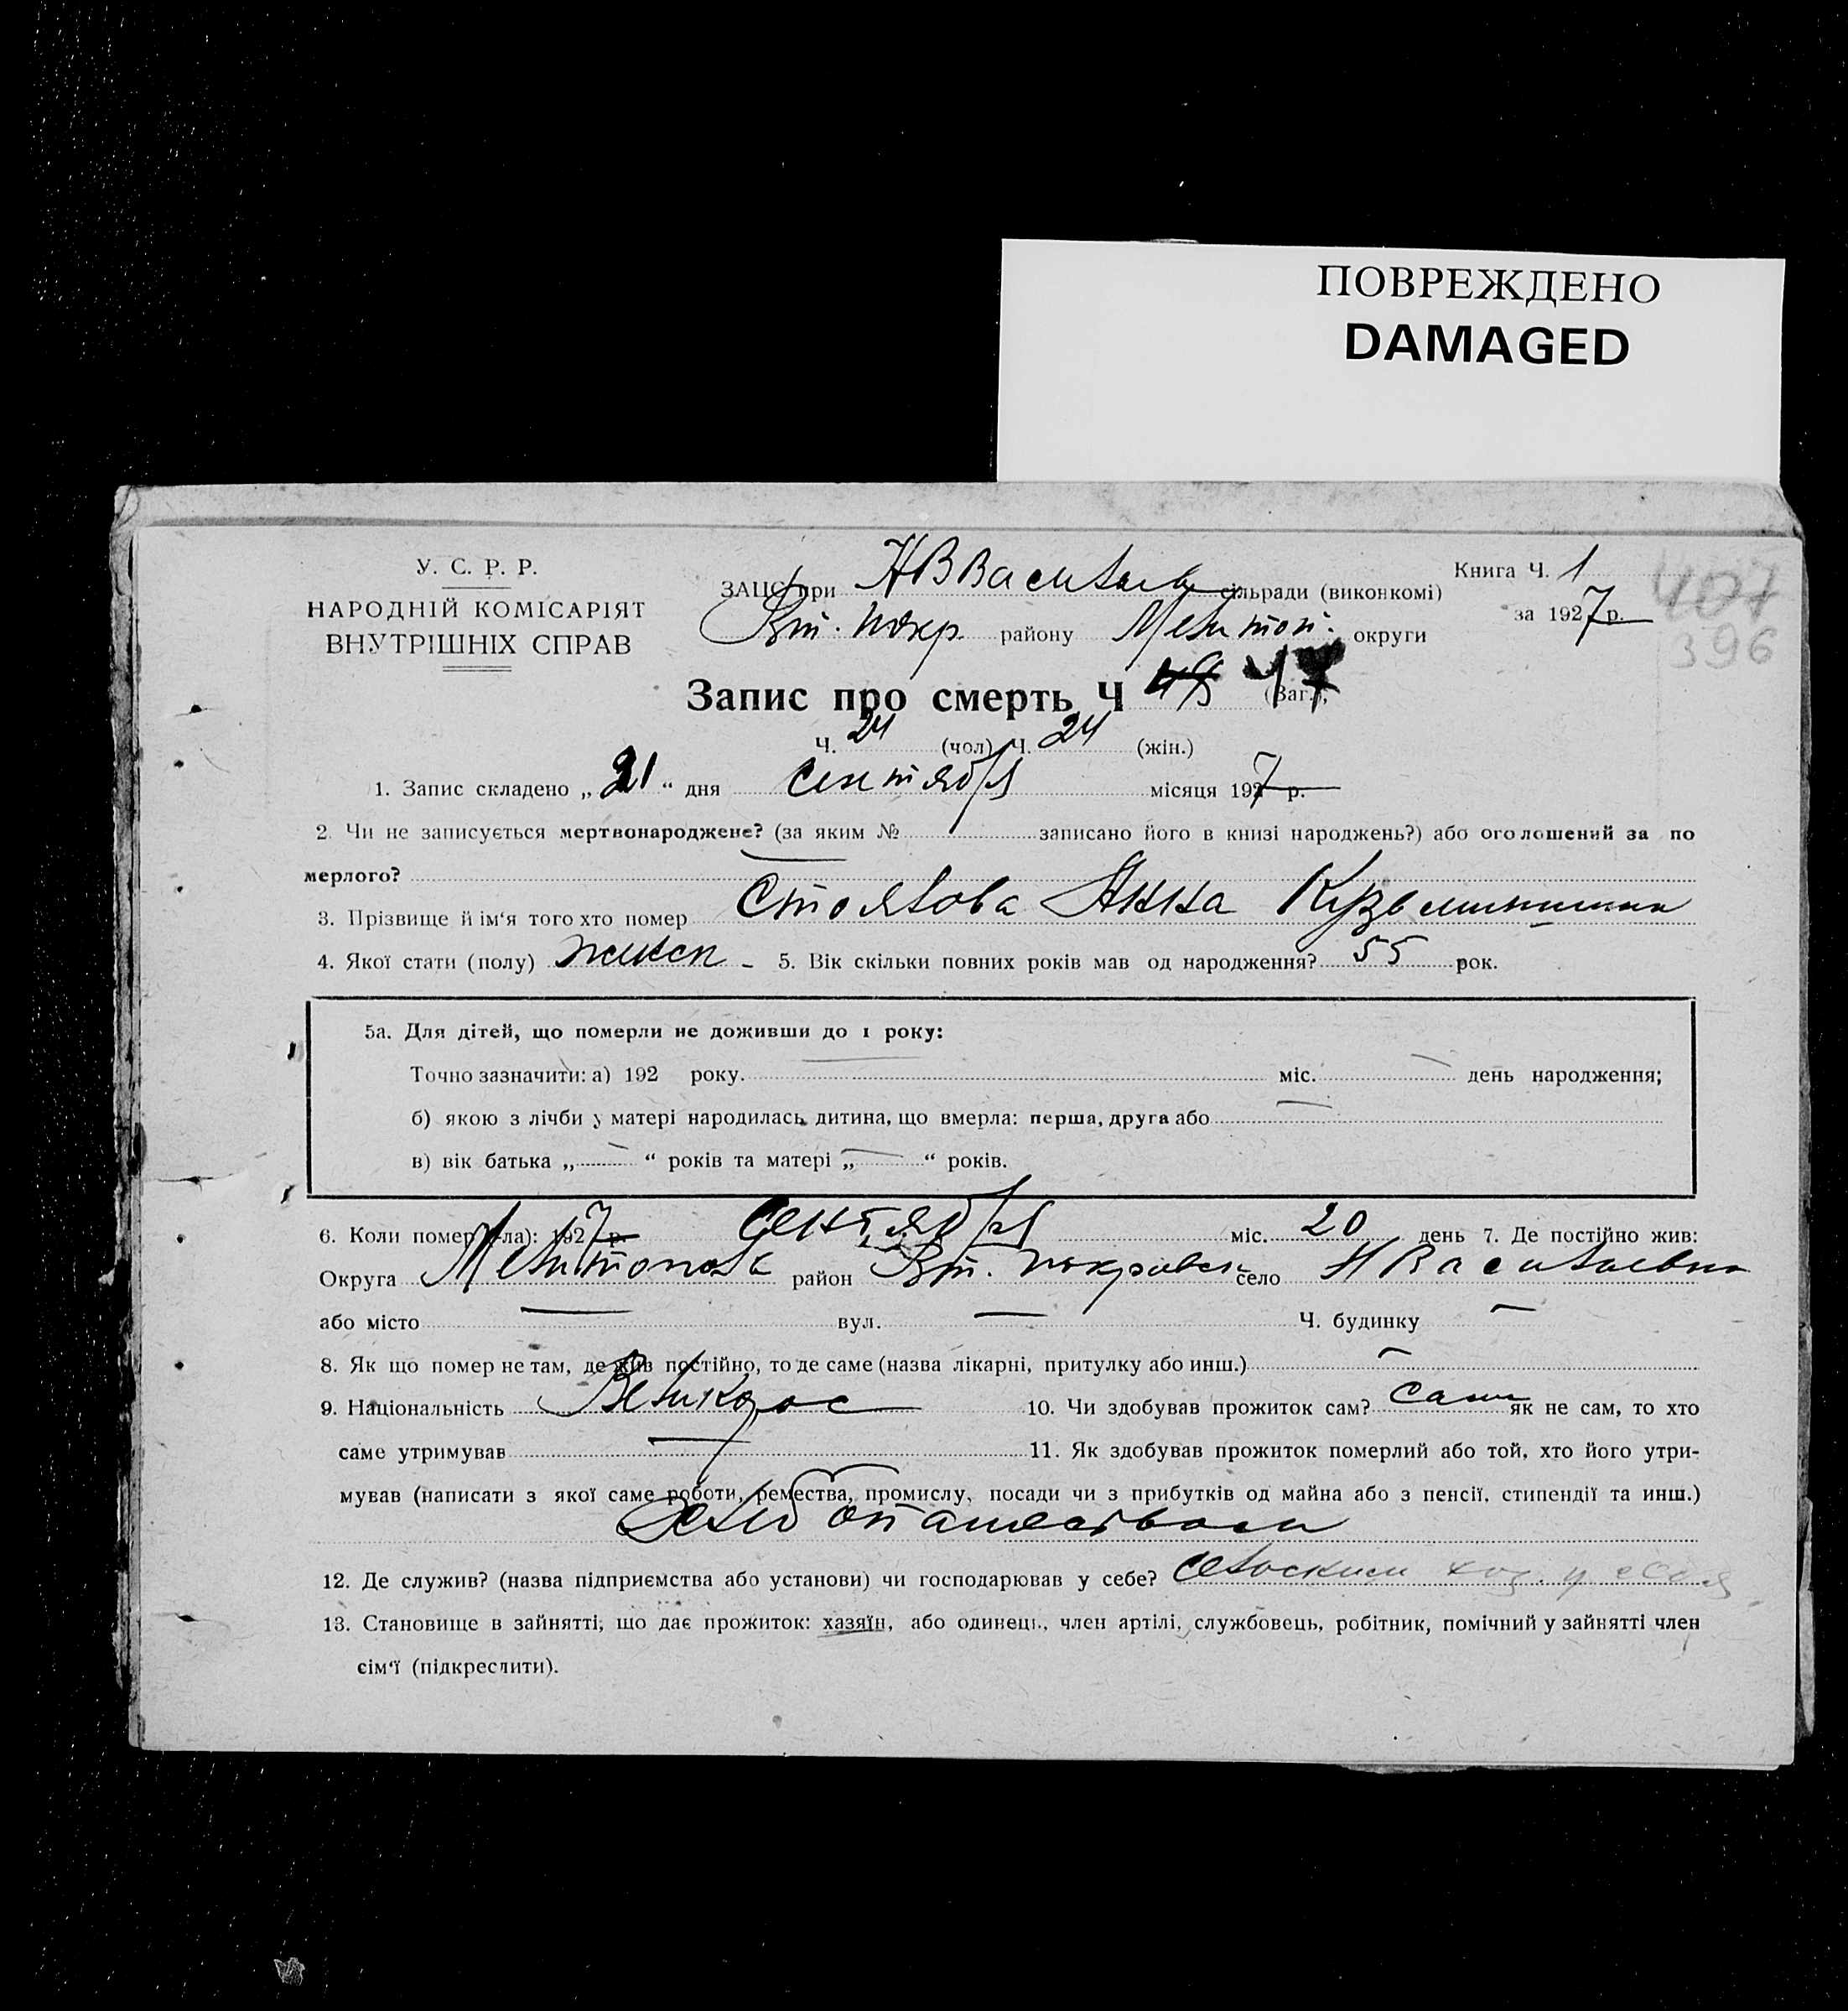 ПОВРЕЖДЕНО
DAMAGED
У. С. Р. Р.
НАРОДНІЙ КОМІСАРІЯТ
ВНУТРІШНІХ СПРАВ
ЗАЦС при сільради (виконкомі)
Вт. Покр. району Мелитоп. округи
Книга Ч. 1
за 1927 р.
407
396
Запис про смерть Ч 47 (Заг.),
Ч. 24 (чол) Ч. 24 (жін.)
1. Запис складено „ 21 “ дня сентября місяця 1927 р.
2. Чи не записується мертвонароджене? (за яким № записано його в книзі народжень?) або оголошений за по
мерлого?
3. Прізвище й ім‘я того хто помер Столяова Анна Кузьминишна
4. Якої стати (полу) женск - 5. Вік скільки повних років мав од народження? 55 рок.
5а. Для дітей, що померли не доживши до 1 року:
Точно зазначити: а) 192 року. міс. день народження;
б) якою з лічби у матері народилась дитина, що вмерла: перша, друга або
в) вік батька „ “ років та матері „ “ років.
6. Коли помер (-ла): 1927 р. сентября міс. 20 день 7. Де постійно жив:
Округа Мелитопол район Вт. Покровск село Н Васильевка
або місто вул. Ч. будинку
8. Як що помер не там, де жив постійно, то де саме (назва лікарні, притулку або инш.)
9. Національність Великорос 10. Чи здобував прожиток сам? сам як не сам, то хто
саме утримував 11. Як здобував прожиток померлий або той, хто його утри-
мував (написати з якої саме роботи, ремества, промислу, посади чи з прибутків од майна або з пенсії, стипендії та инш.)
Хлебопашеством
12. Де служив? (назва підприємства або установи) чи господарював у себе? сельским хоз. у себя
13. Становище в зайнятті, що дає прожиток: хазяїн, або одинец., член артілі, службовець, робітник, помічний у зайнятті член
сім‘ї (підкреслити).